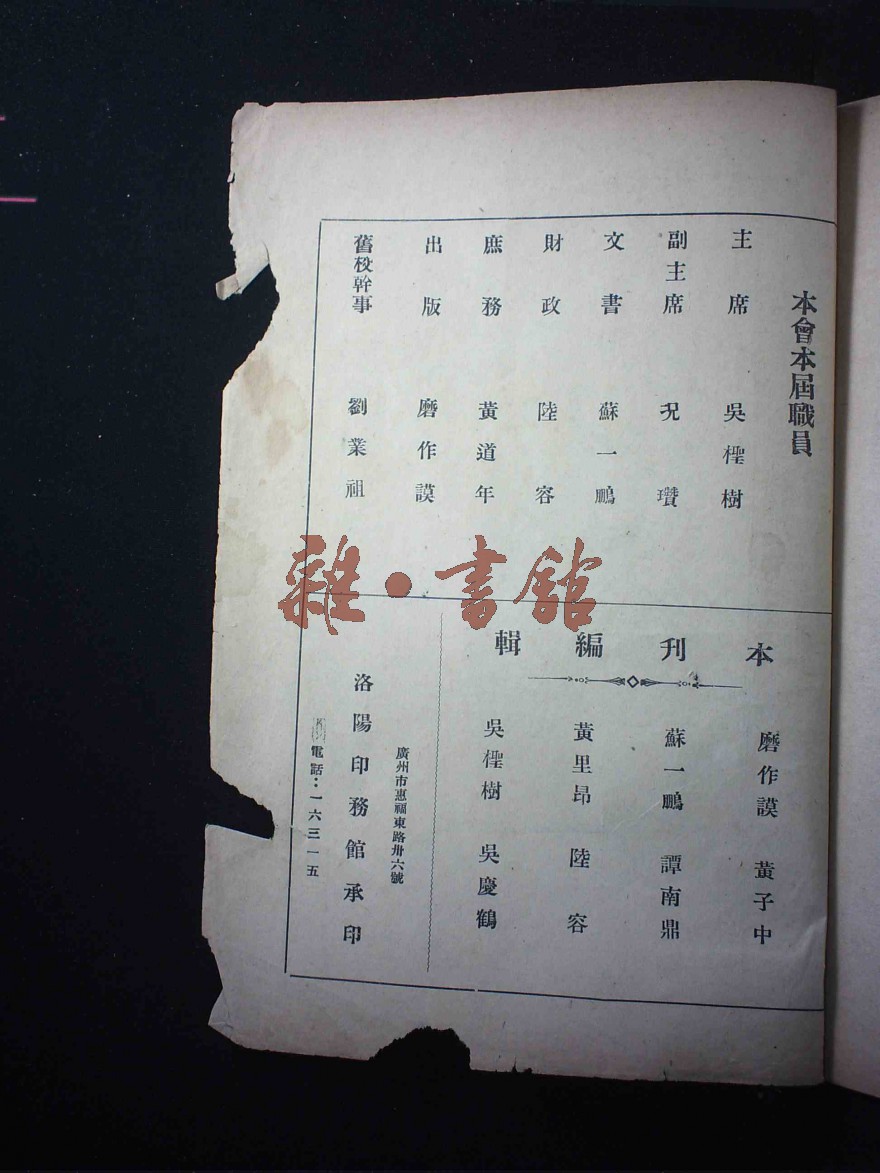 本會本屆職員
主席 吳檉樹
副主席 況瓚
文書 蘇一鵬
財政 陸容
庶務 黃道年
出版 磨作謨
舊校幹事 劉業祖
本刊編輯
磨作謨 黃子中
蘇一鵬 譚南鼎
黃里昂 陸容
吳檉樹 吳慶鶴
廣州市惠福東路卅六號
洛陽印務館承印
電話：一六三一五
雜·書館